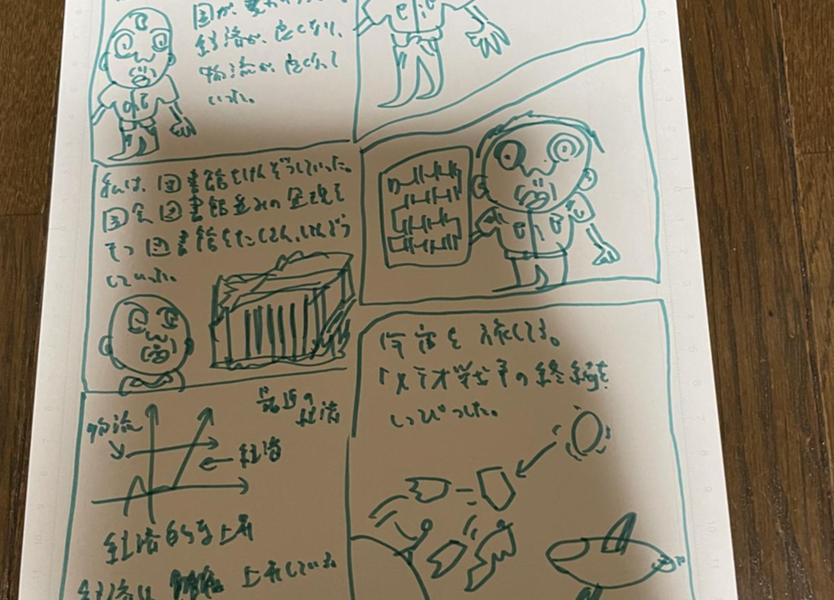 国が、変わり
経済が、良くなり、
物流が、良くなって
いった。
私は、図書館をけんぞうしていった。
国会図書館並みの金現を
もつ図書館をたくさん、けんぞう
していった。
物流
最近の
経済
経済
経済的な上昇
経済は 上昇している
宇宙を旅してる。
「メテオ戦争の終結を
しっぴつした。